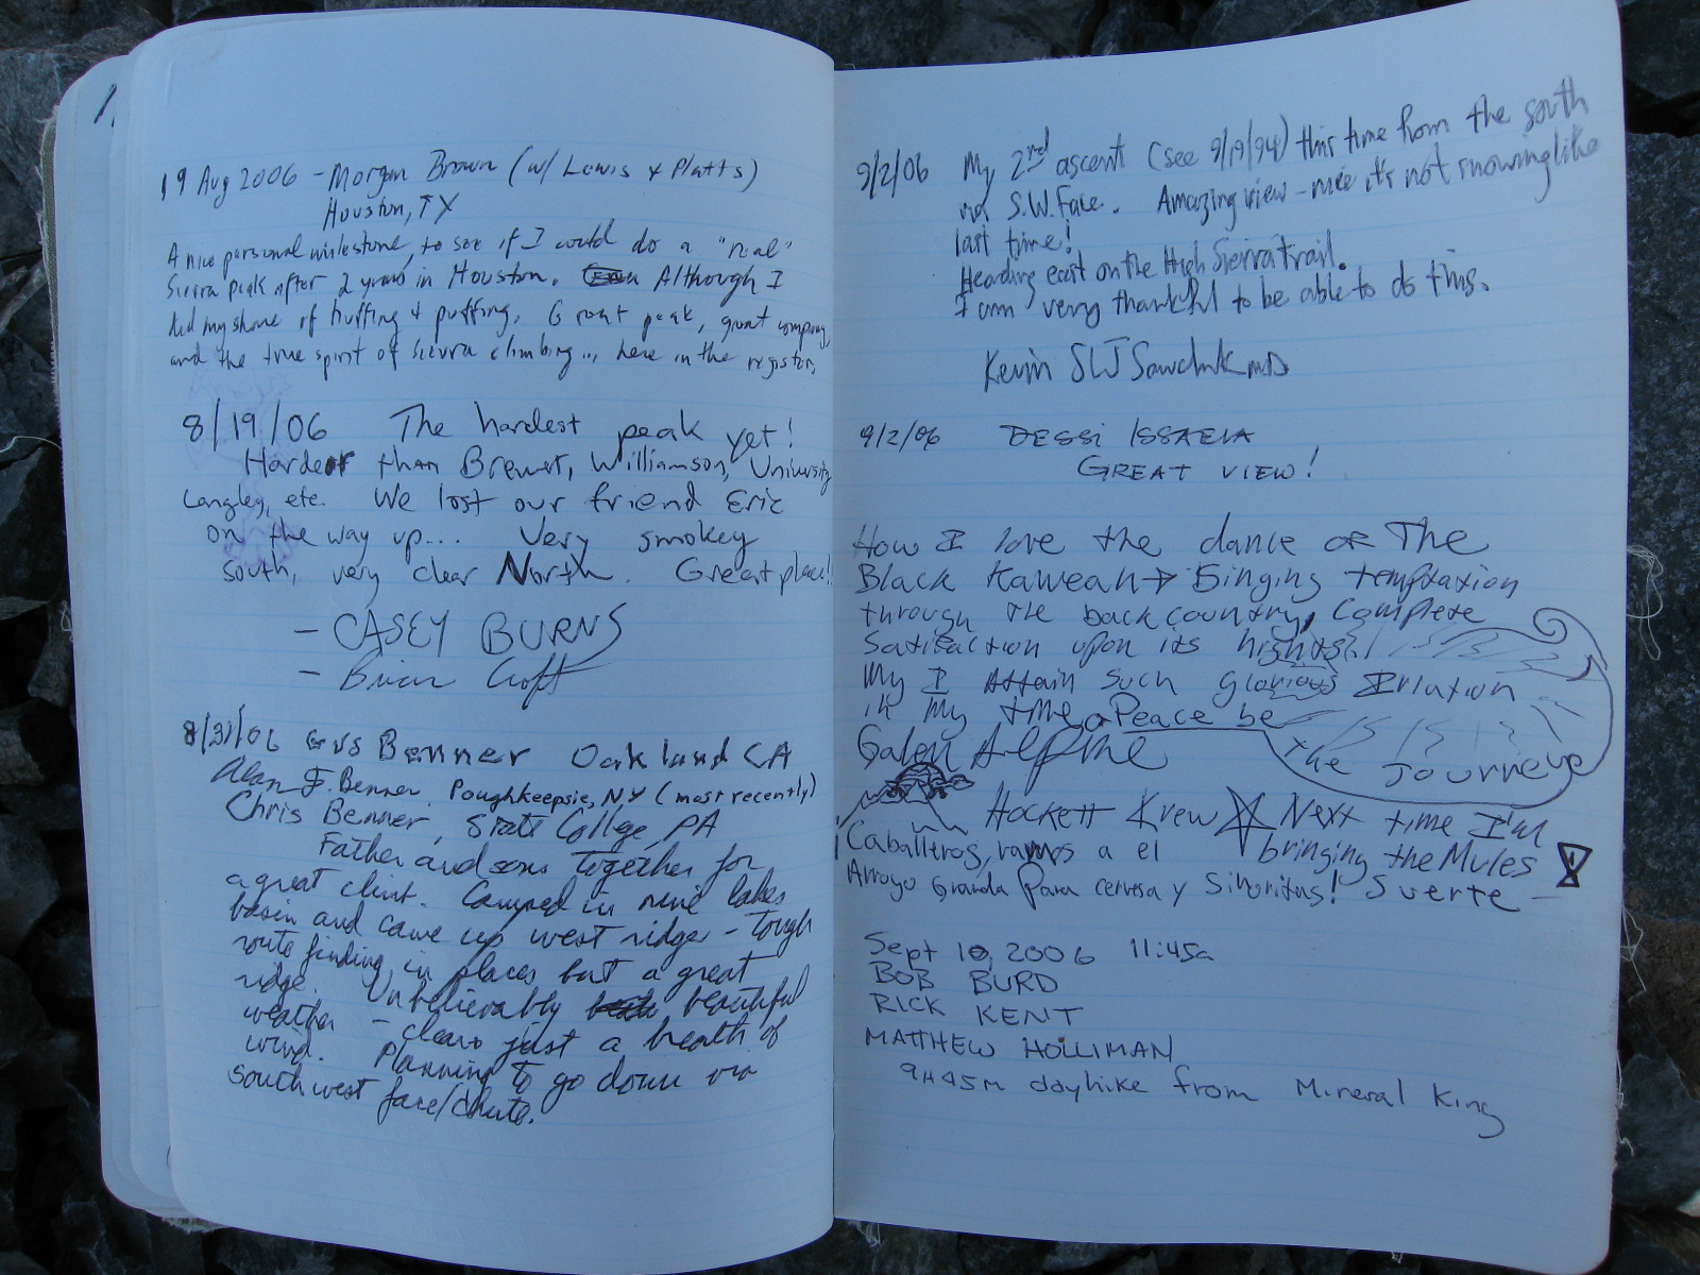 19 Aug 2006 - Morgan Brown (w/ Lewis & Platts)
Houston, TX
A nice personal milestone, to see if I could do a "real"
Sierra peak after 2 years in Houston. Although I
did my share of huffing & puffing. Great peak, great company,
and the true spirit of Sierra climbing... here in the register.
8/19/06 The hardest peak yet!
Harder than Brewer, Williamson, University
Langley, etc. We lost our friend Eric
on the way up... Very smokey
south, very clear North. Great place!
- CASEY BURNS
- Brian Croft
8/31/06 Gus Benner Oakland CA
Alan F. Benner, Poughkeepsie, NY (most recently)
Chris Benner, State College, PA
Father and sons together for
a great climb. Camped in nine lakes
basin and came up west ridge - tough
route finding in places but a great
ridge. Unbelievably beautiful
weather - clear, just a breath of
wind. Planning to go down via
southwest face/chute.
9/2/06 My 2nd ascent (see 9/19/94) this time from the south
via S.W. Face. Amazing view - nice it's not snowing like
last time!
Heading east on the High Sierra Trail.
I am very thankful to be able to do this.
Kevin SLJ Sawchuk MD
9/2/06 DESSI ISSAEVA
GREAT VIEW!
How I love the dance of The
Black Kaweah → Singing temptation
through the backcountry, Complete
Satisfaction upon its hights!
My I Attain such Glorious
in my time. Peace be
the Journeye
Galen Alpine
Hockett Krew ☆ Next time I'm
bringing the Mules
Caballeros, vamos a el
Arroyo Granda Para cervesa y Sinoritas! Suerte -
Sept 10, 2006 11:45a
BOB BURD
RICK KENT
MATTHEW HOLLIMAN
9H45m dayhike from Mineral King